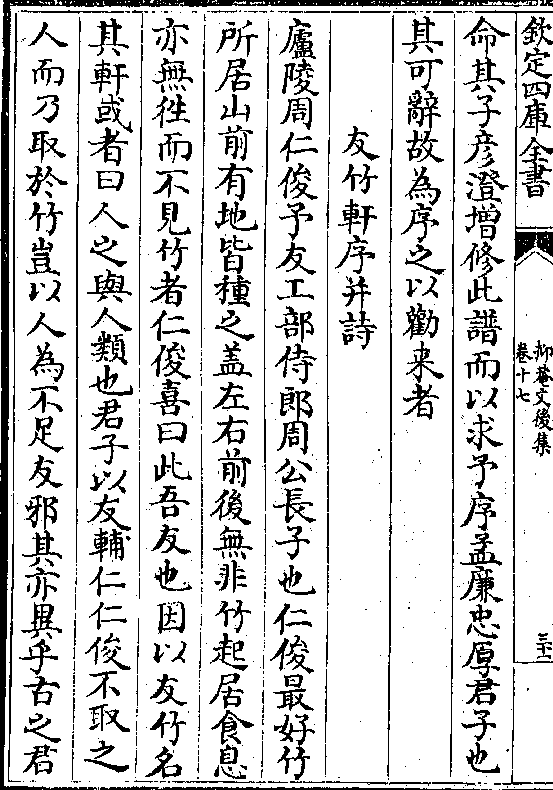 欽定四庫全書
抑菴文後集
卷十七
三十二
命其子彥澄增修此譜而以求予序孟廉忠厚君子也
其可辭故為序之以勸来者
友竹軒序并詩
廬陵周仁俊予友工部侍郎周公長子也仁俊最好竹
所居山前有地皆種之盖左右前後無非竹起居食息
亦無徃而不見竹者仁俊喜曰此吾友也因以友竹名
其軒或者曰人之與人類也君子以友輔仁仁俊不取之
人而乃取於竹豈以人為不足友邪其亦異乎古之君